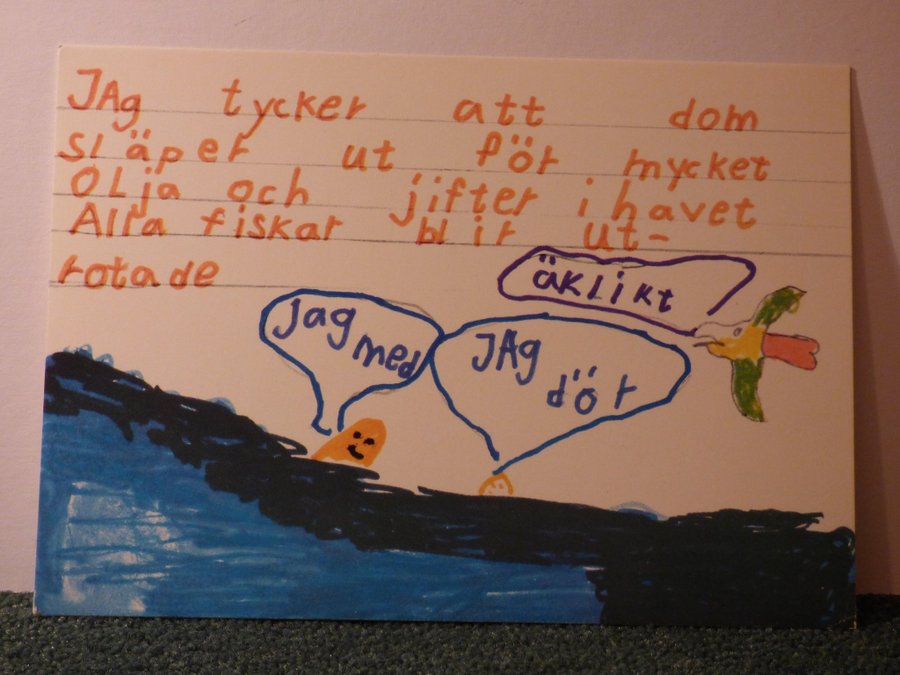 JAg tycker att dom
släper ut för mycket
OLja och jifter i havet
Alla fiskar blir ut-
rotade
äkLikt
Jag med
JAg dör